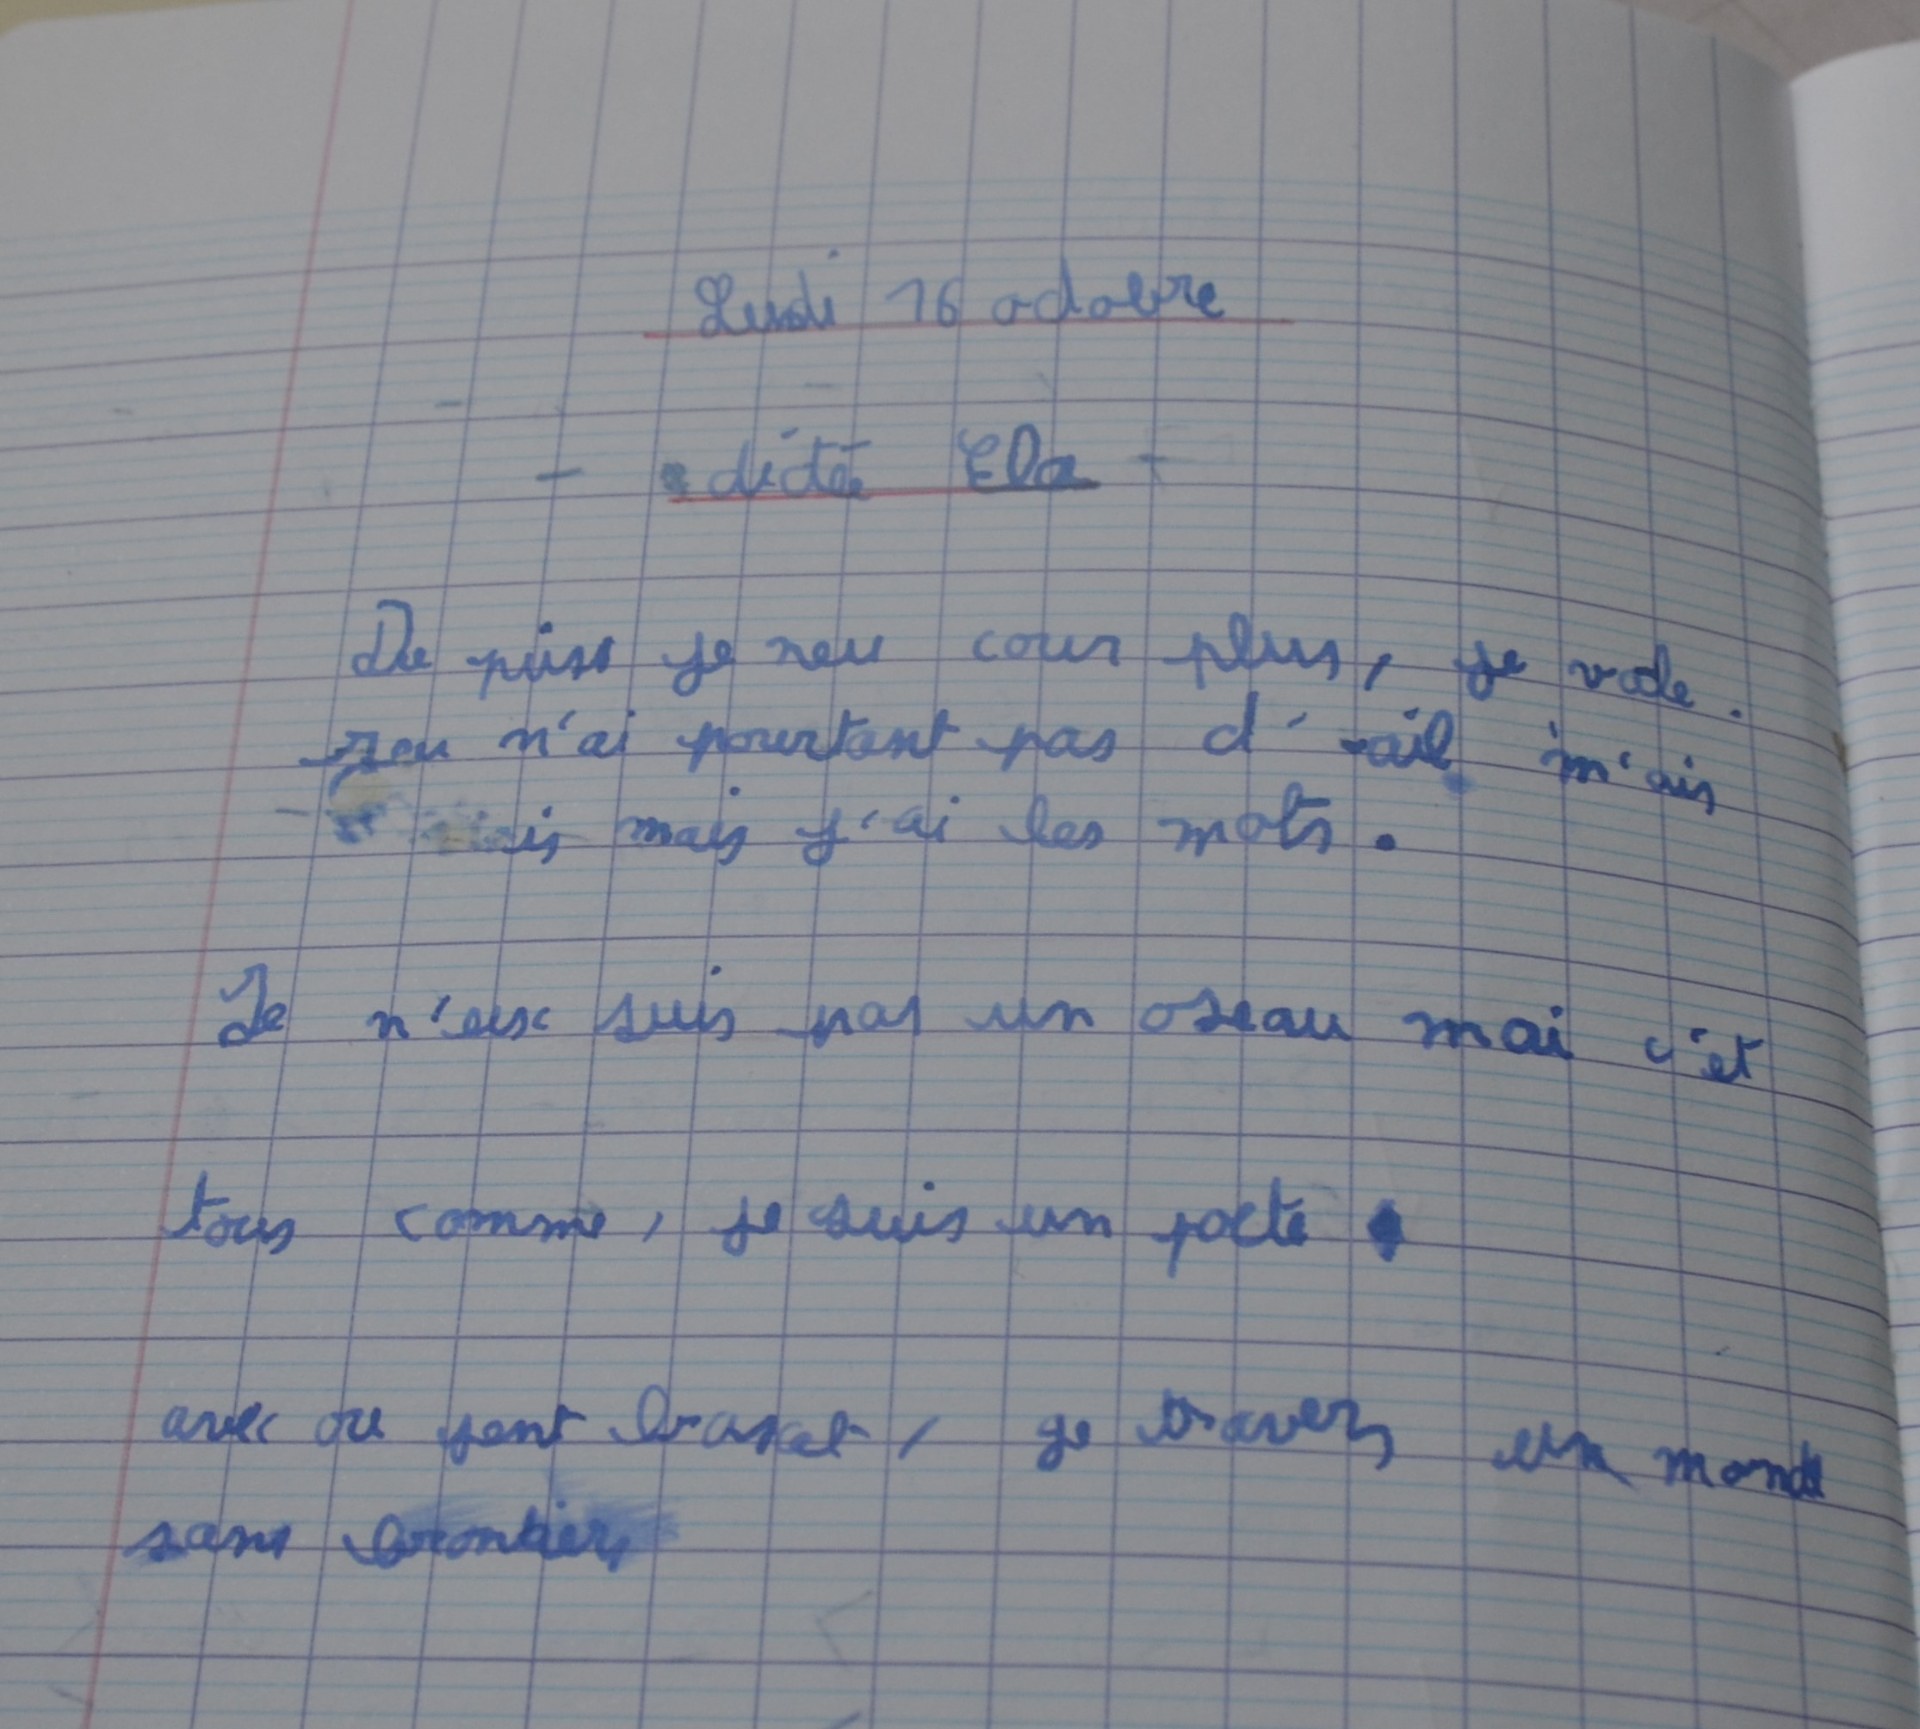 Lundi 16 octobre
- dictée Ela -
De puis je neu cour plus, je vole.
n'ai pourtant pas d'ail m'ais
mais j'ai les mots.
Je n'eux suis pas un oseau mai c'et
tous comme, je suis un poete
avec ou sent basket, je travers un monde
sans